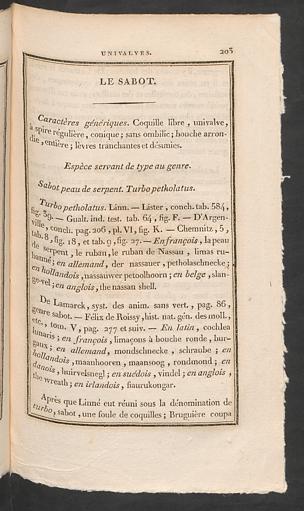 UNIVALVES. 203
LE SABOT.
Caractères génériques. Coquille libre, univalve,
à spire régulière, conique; sans ombilic; bouche arron-
die, entière; lèvres tranchantes et désunies.
Espèce servant de type au genre.
Sabot peau de serpent. Turbo petholatus.
Turbo petholatus. Linn. — Lister, conch. tab. 584,
fig. 39. — Gualt. ind. test. tab. 64, fig. F. — D'Argen-
ville, conch. pag. 206, pl. VI, fig. K. — Chemnitz, 5,
tab. 8, fig. 18, et tab. 9, fig. 27. — En françois, la peau
de serpent, le ruban, le ruban de Nassau, limas ru-
banné; en allemand, der nassauer, petholaschnecke;
en hollandois, nassauwer petoolhoorn; en belge, slan-
ge-vel; en anglois, the nassau shell.
De Lamarck, syst. des anim. sans vert., pag. 86,
genre sabot. — Félix de Roissy, hist. nat. gén. des moll.,
etc., tom. V, pag. 277 et suiv. — En latin, cochlea
lunaris; en françois, limaçons à bouche ronde, bur-
gaux; en allemand, mondschnecke, schraube; en
hollandois, maanhooren, maansoog, rondmond; en
danois, huirvelsnegl; en suédois, vindel; en anglois,
the wreath; en irlandois, fiaurukongar.
Après que Linné eut réuni sous la dénomination de
turbo, sabot, une foule de coquilles; Bruguière coupa